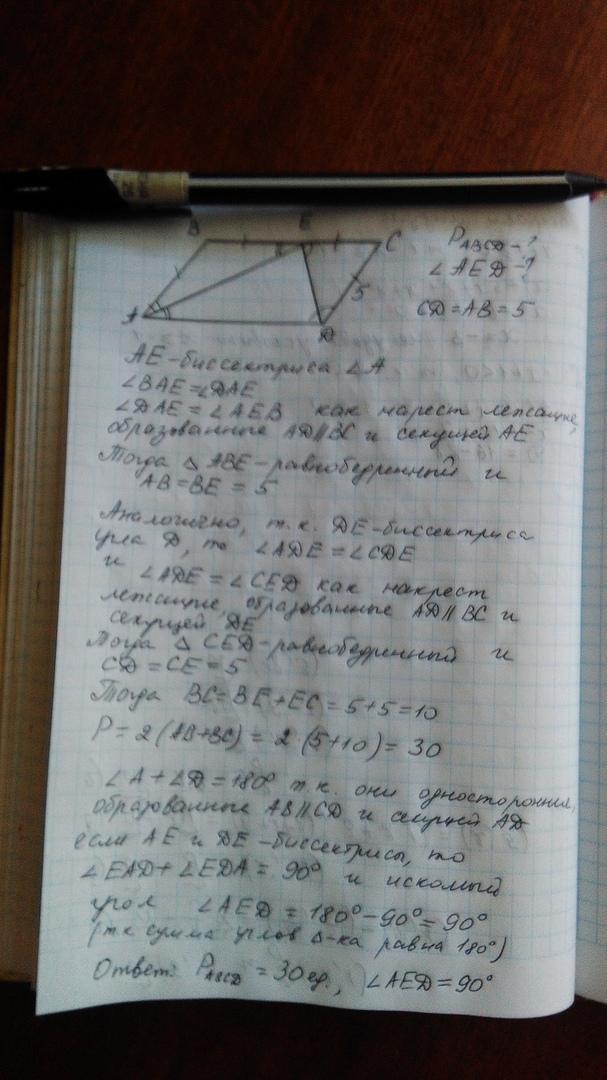 B E C
A D 5
P ABCD - ?
∠AED - ?
CD = AB = 5
AE - биссектриса ∠A
∠BAE = ∠DAE
∠DAE = ∠AEB как накрест лежащие,
образованные AD∥BC и секущей AE
Тогда △ ABE - равнобедренный и
AB = BE = 5
Аналогично, т.к. DE - биссектриса
угла D, то ∠ADE = ∠CDE
и ∠ADE = ∠CED как накрест
лежащие, образованные AD∥BC и
секущей DE
Тогда △ CED - равнобедренный и
CD = CE = 5
Тогда BC = BE + EC = 5 + 5 = 10
P = 2 (AB + BC) = 2 (5 + 10) = 30
∠A + ∠D = 180° т.к. они односторонние,
образованные AB∥CD и секущей AD
если AE и DE - биссектрисы, то
∠EAD + ∠EDA = 90° и искомый
угол ∠AED = 180° - 90° = 90°
(тк сумма углов △-ка равна 180°)
Ответ: P ABCD = 30 ед., ∠AED = 90°